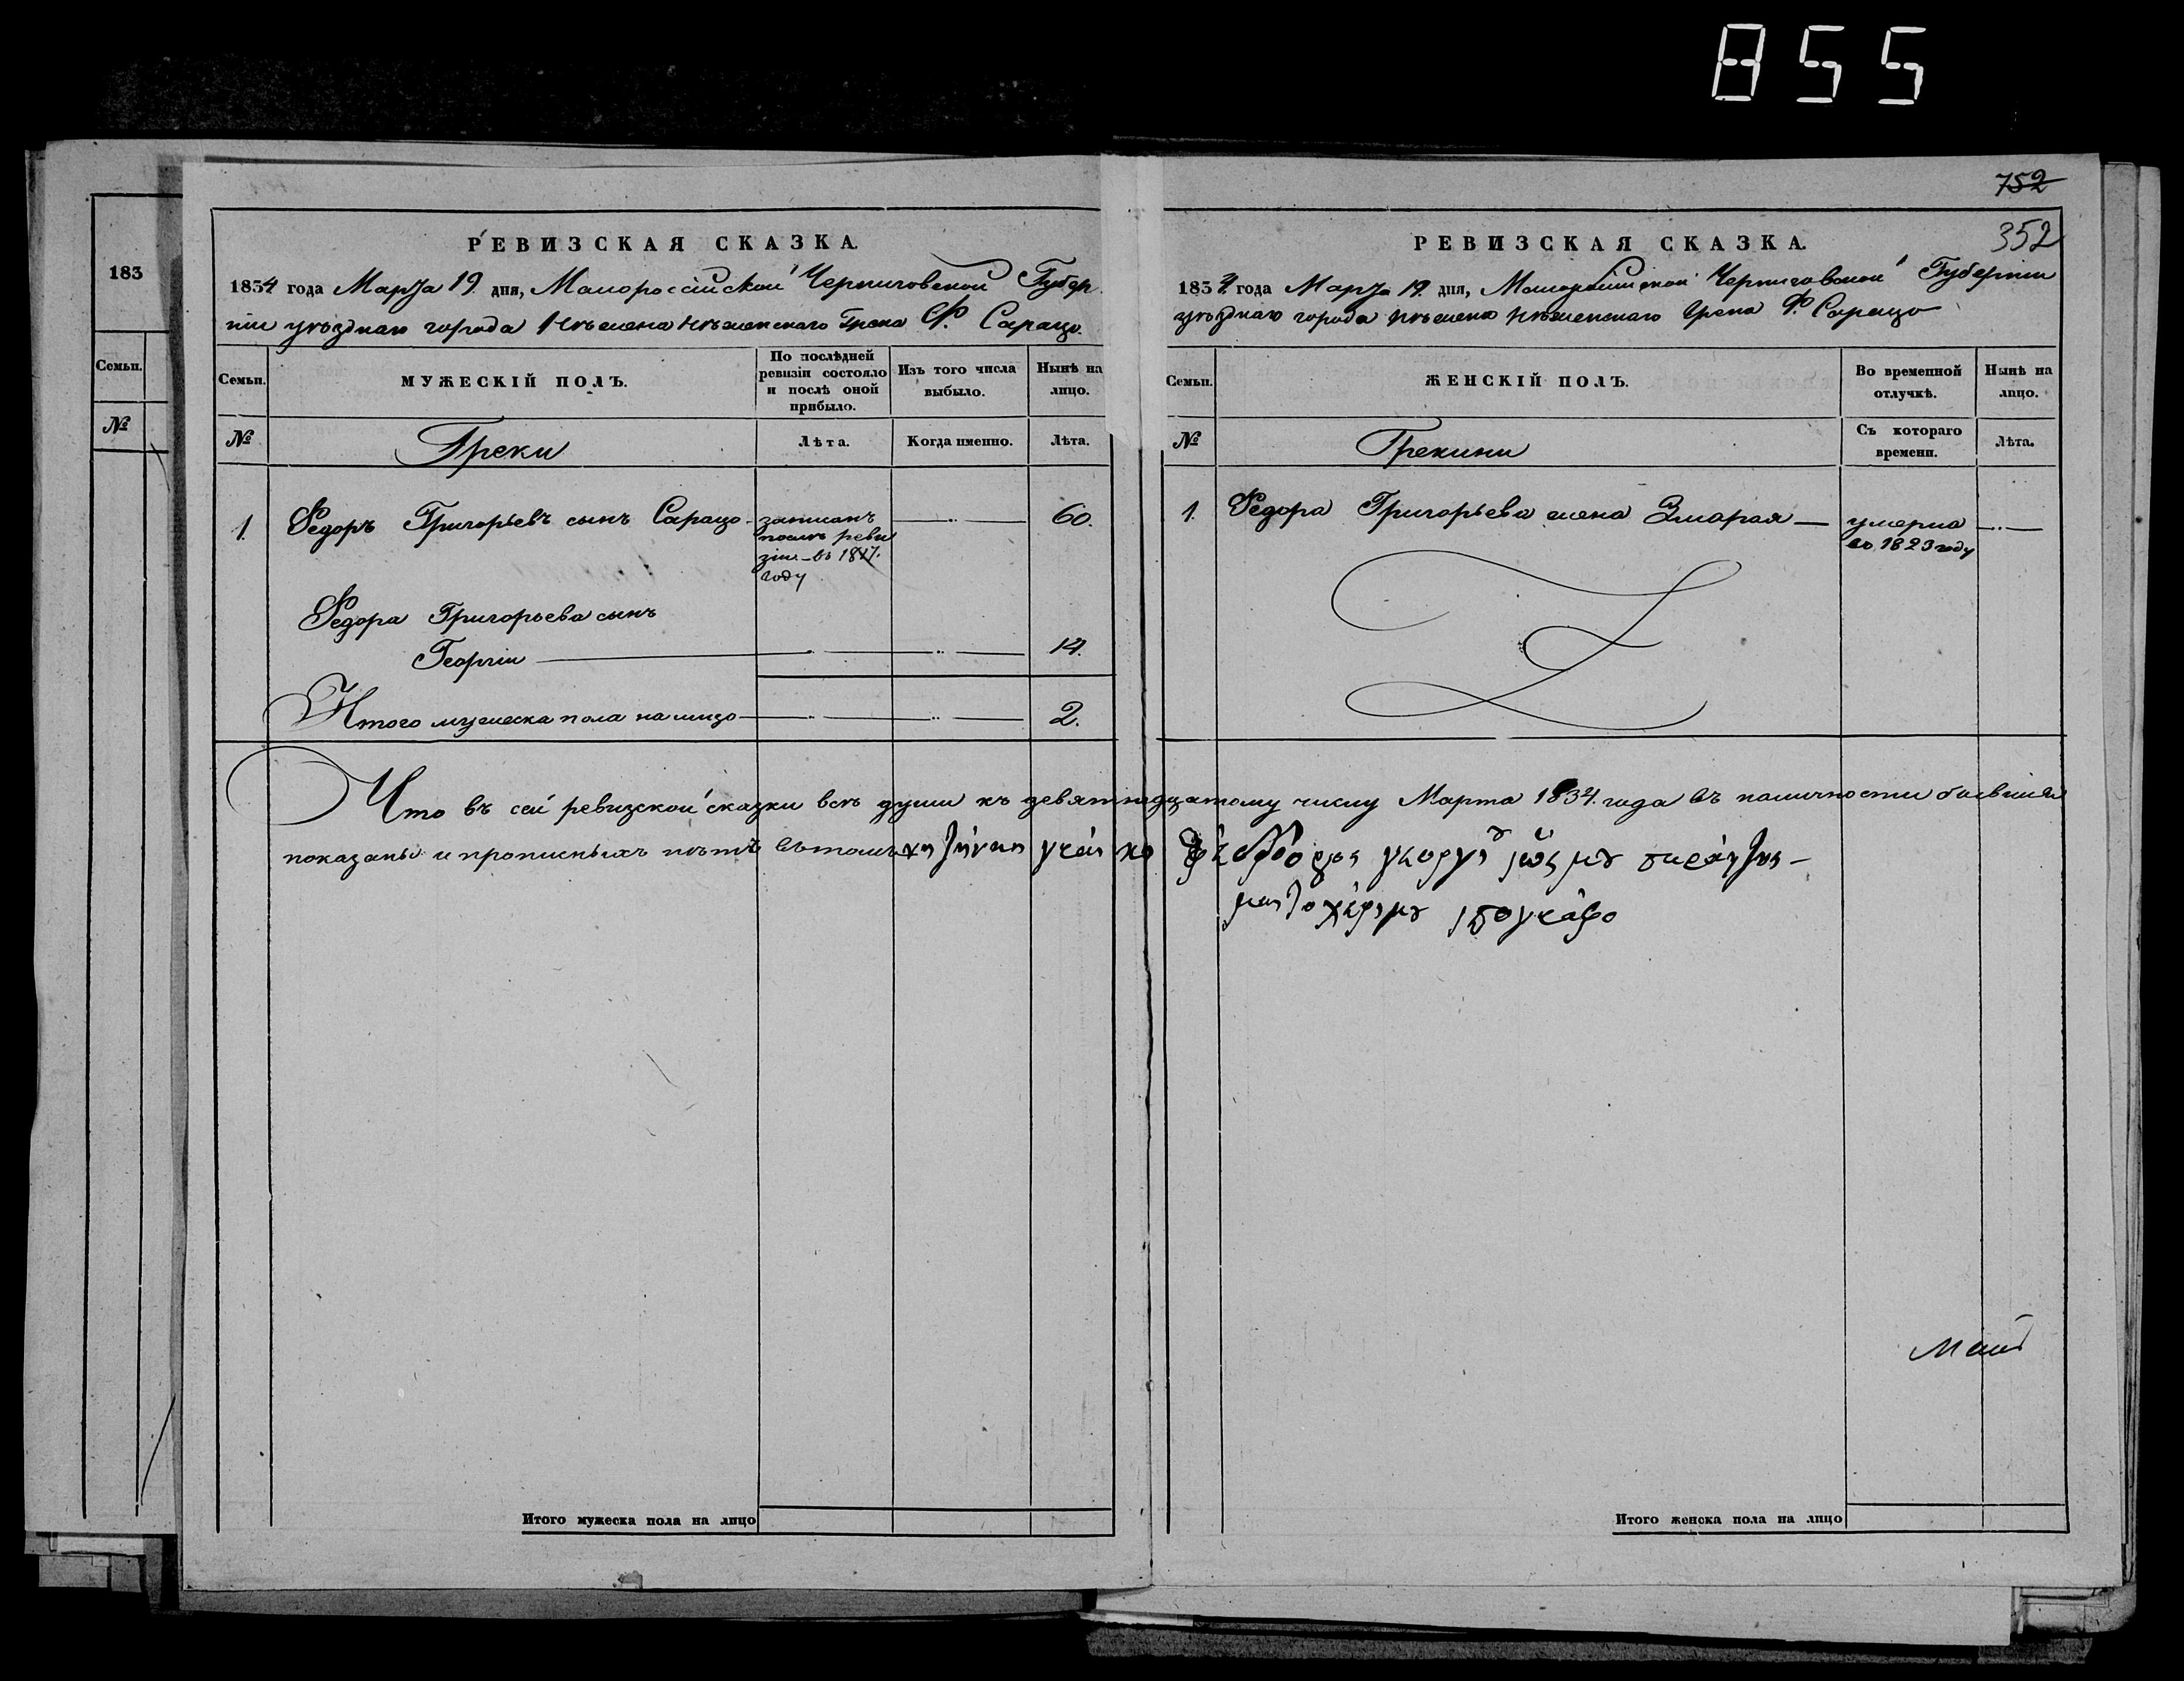 855
752
352
183
Семьи.
№
РЕВИЗСКАЯ СКАЗКА.
1834 года Марта 19. дня, Малороссійской Черниговской Губер
ніи уѣзднаго города Нѣжина Нѣжинскаго Грека Ф. Сарацо.
Семьи. МУЖЕСКІЙ ПОЛЪ. По послѣдней ревизіи состояло и послѣ оной прибыло. Изъ того числа выбыло. Нынѣ на лицо.
№ Греки Лѣта. Когда именно. Лѣта.
1. Федоръ Григорьевъ сынъ Сарацо - записанъ 60.
послѣ реви
зіи - въ 1817.
году
Федора Григорьева сынъ
Георгій 14.
Итого мужеска пола на лицо 2.
РЕВИЗСКАЯ СКАЗКА.
1834. года Марта 19. дня, Малороссійской Черниговской Губерніи
уѣзднаго города Нѣжина Нѣжинскаго Грека Ф. Сарацо
Семьи. ЖЕНСКІЙ ПОЛЪ. Во временной отлучкѣ. Нынѣ на лицо.
№ Грекини Съ котораго времени. Лѣта.
1. Федора Григорьева жена Змарая — умерла
въ 1823 году
Что въ сей ревизской сказки всѣ души къ девятнадцатому числу Марта 1834. года въ наличности бывшія
показаны и прописныхъ нѣтъ въ томъ
μου
υπογράφο
Итого мужеска пола на лицо
Итого женска пола на лицо